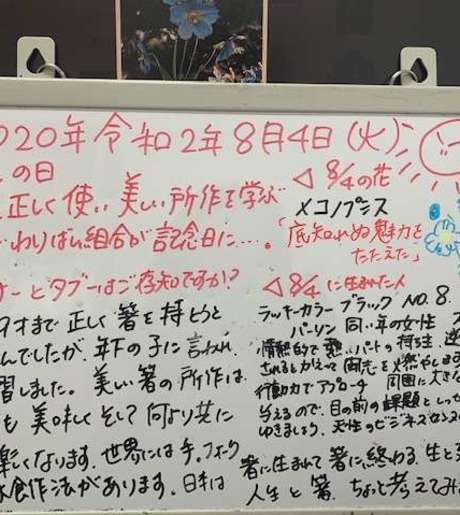 2020年 令和2年 8月4日 (火)
の日
正しく使い 美しい所作を学ぶ
わりばし組合が記念日に…。
ナーとタブーはご存知ですか?
オまで 正しく 箸を持とうと
んでしたが、年下の子に言われ
習しました。美しい箸の所作は
も 美味しく そして何より共に
楽しくなります。世界には手、フォーク
食作法があります。日本は
◁ 8/4の花
メコノプシス
「底知れぬ魅力を
たたえた」
◁ 8/4 に生まれた人
ラッキーカラー ブラック NO.8.
パーソン 同い年の女性
情熱的で熱いハートの持ち主、逆
されるとかえって闘志を燃やします
行動力でアプローチ 周囲に大き
与えるので、目の前の課題としっ
ゆきましょう。天性のビジネスセンス
箸に生まれて箸に終わる 生と
人生と箸、ちょっと考えてみ